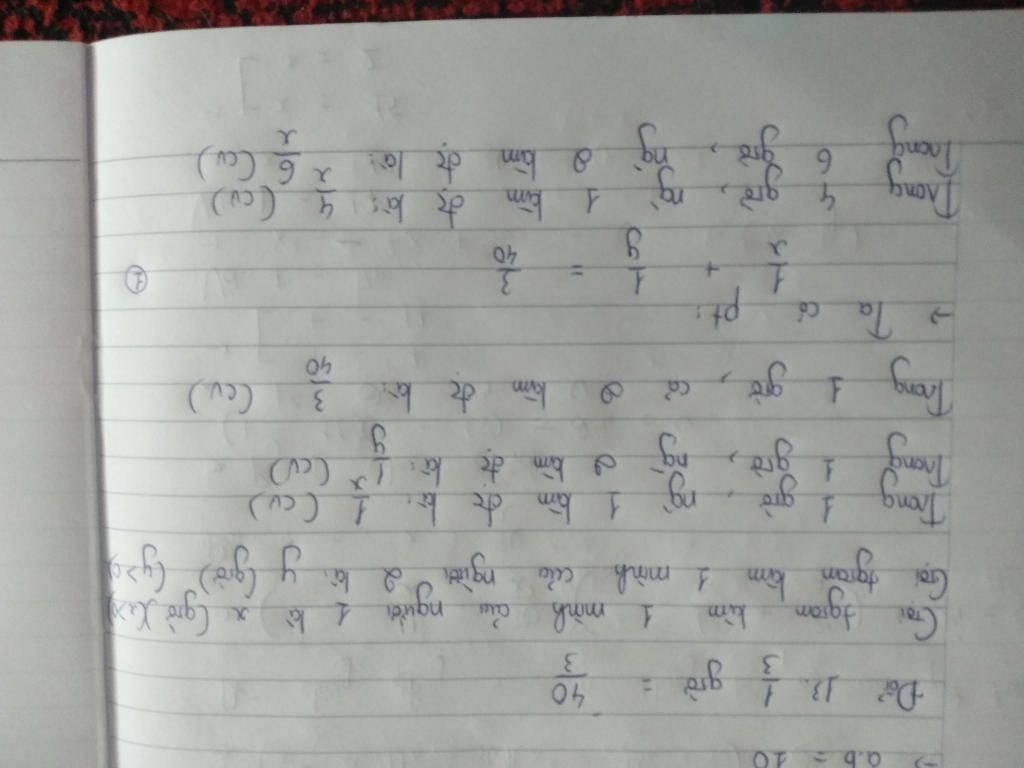 → a.b = 10
Đổi 13 1/3 giờ = 40/3
Gọi tgian làm 1 mình của người 1 là x (giờ)(x>0)
Gọi tgian làm 1 mình của người 2 là: y (giờ) (y>0)
Trong 1 giờ, ng' 1 làm đc là: 1/x (cv)
Trong 1 giờ, ng' 2 làm đc là: 1/y (cv)
Trong 1 giờ, cả 2 làm đc là: 3/40 (cv)
→ Ta có pt:
1/x + 1/y = 3/40 ①
Trong 4 giờ, ng' 1 làm đc là: 4/x (cv)
Trong 6 giờ, ng' 2 làm đc là: 6/x (cv)